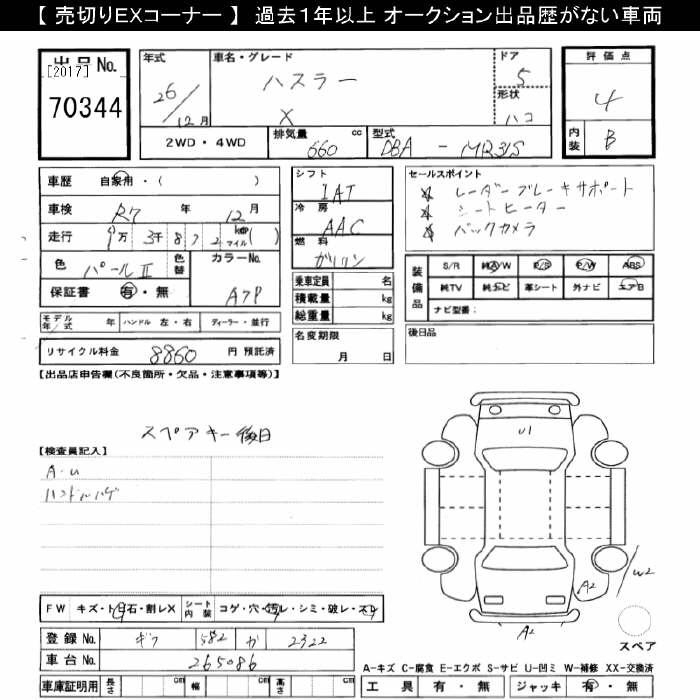 【 売切りEXコーナー 】 過去1年以上 オークション出品歴がない車両
出品No.
[2017]
70344
年式
26/12月
車名・グレード
ハスラー
X
ドア
5
形状
ハコ
評価点
4
内装
B
2WD・4WD
排気量
660 cc
型式
DBA - MR31S
車歴 自家用・( )
車検 R7 年 12月
走行 9万 3千 8 7 2 km マイル( )
色 パールⅡ 色替
カラーNo.
A7P
保証書 有・無
モデル年/式 年 ハンドル 左・右 ディーラー・並行
リサイクル料金 8860 円 預託済
シフト
IAT
冷房
AAC
燃料
ガソリン
乗車定員 名
積載量 kg
総重量 kg
名変期限
月 日
セールスポイント
レーダーブレーキサポート
シートヒーター
バックカメラ
装備品
S/R 純A/W P/S P/W ABS
純TV 純ナビ 革シート 外ナビ エアB
ナビ型番:
後日品
【出品店申告欄(不良箇所・欠品・注意事項等)】
スペアキー後日
【検査員記入】
A・U
ハンドルハゲ
FW キズ・ト・日石・割レX シート内装 コゲ・穴・汚レ・シミ・破レ・スレ
登録No. ギフ 582 か 2322
車台No. 265086
車庫証明用 長さ cm 幅 cm 高さ cm
U1
A2
W2
A2
スペア
A-キズ C-腐食 E-エクボ S-サビ U-凹ミ W-補修 XX-交換済
工具 有・無 ジャッキ 有・無